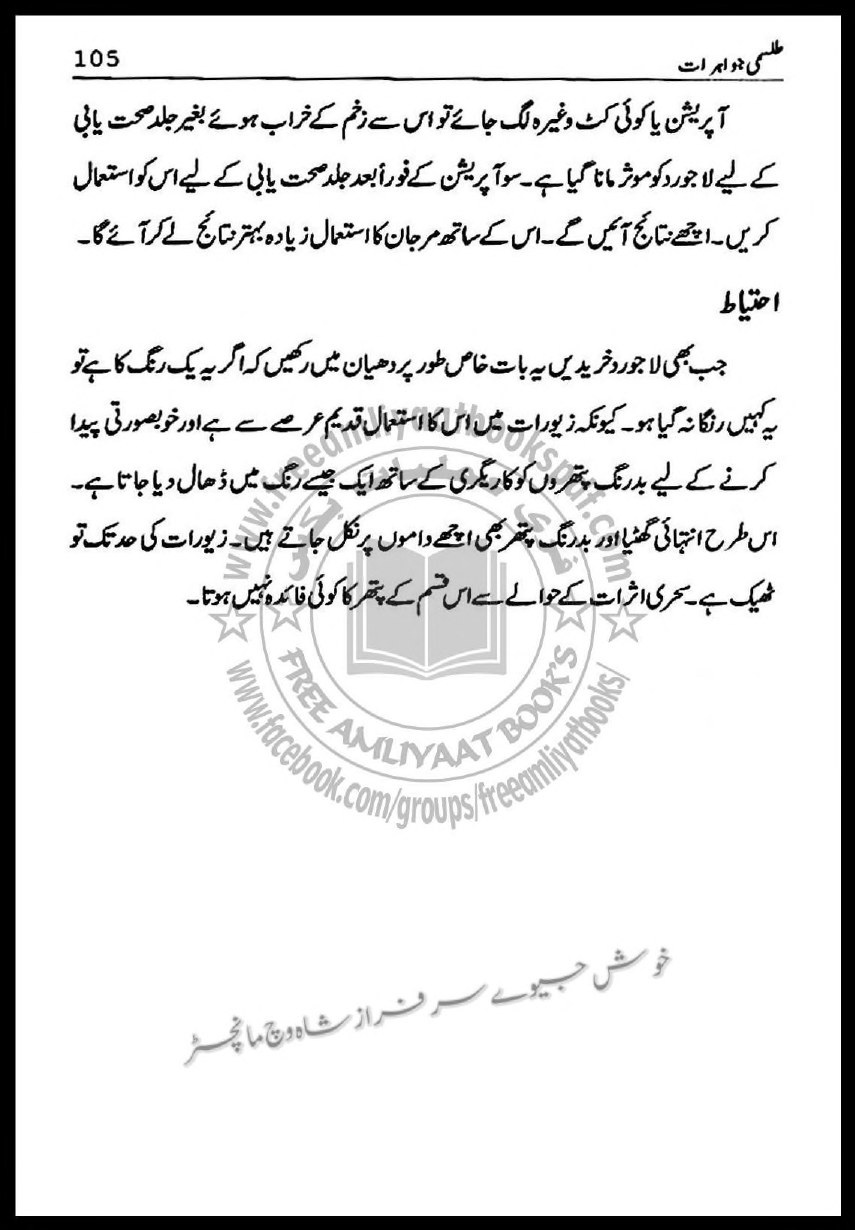 طلسمی جواہرات 105
آپریشن یا کوئی کٹ وغیرہ لگ جائے تو اس سے زخم کے خراب ہوئے بغیر جلد صحت یابی
کے لیے لاجورد کو موثر مانا گیا ہے۔ سو آپریشن کے فوراً بعد جلد صحت یابی کے لیے اس کو استعمال
کریں۔ اچھے نتائج آئیں گے۔ اس کے ساتھ مرجان کا استعمال زیادہ بہتر نتائج لے کر آئے گا۔
احتیاط
جب بھی لاجورد خریدیں یہ بات خاص طور پر دھیان میں رکھیں کہ اگر یہ یک رنگ کا ہے تو
یہ کہیں رنگا نہ گیا ہو۔ کیونکہ زیورات میں اس کا استعمال قدیم عرصے سے ہے اور خوبصورتی پیدا
کرنے کے لیے بدرنگ پتھروں کو کاریگری کے ساتھ ایک جیسے رنگ میں ڈھال دیا جاتا ہے۔
اس طرح انتہائی گھٹیا اور بدرنگ پتھر بھی اچھے داموں پر نکل جاتے ہیں۔ زیورات کی حد تک تو
ٹھیک ہے۔ سحری اثرات کے حوالے سے اس قسم کے پتھر کا کوئی فائدہ نہیں ہوتا۔
www.freeamliyaatbookspdf.com
FREE AMLIYAAT BOOK'S
www.facebook.com/groups/freeamliyatbooks/
خوش جیوے سرفراز شاہ وچ مانچسٹر